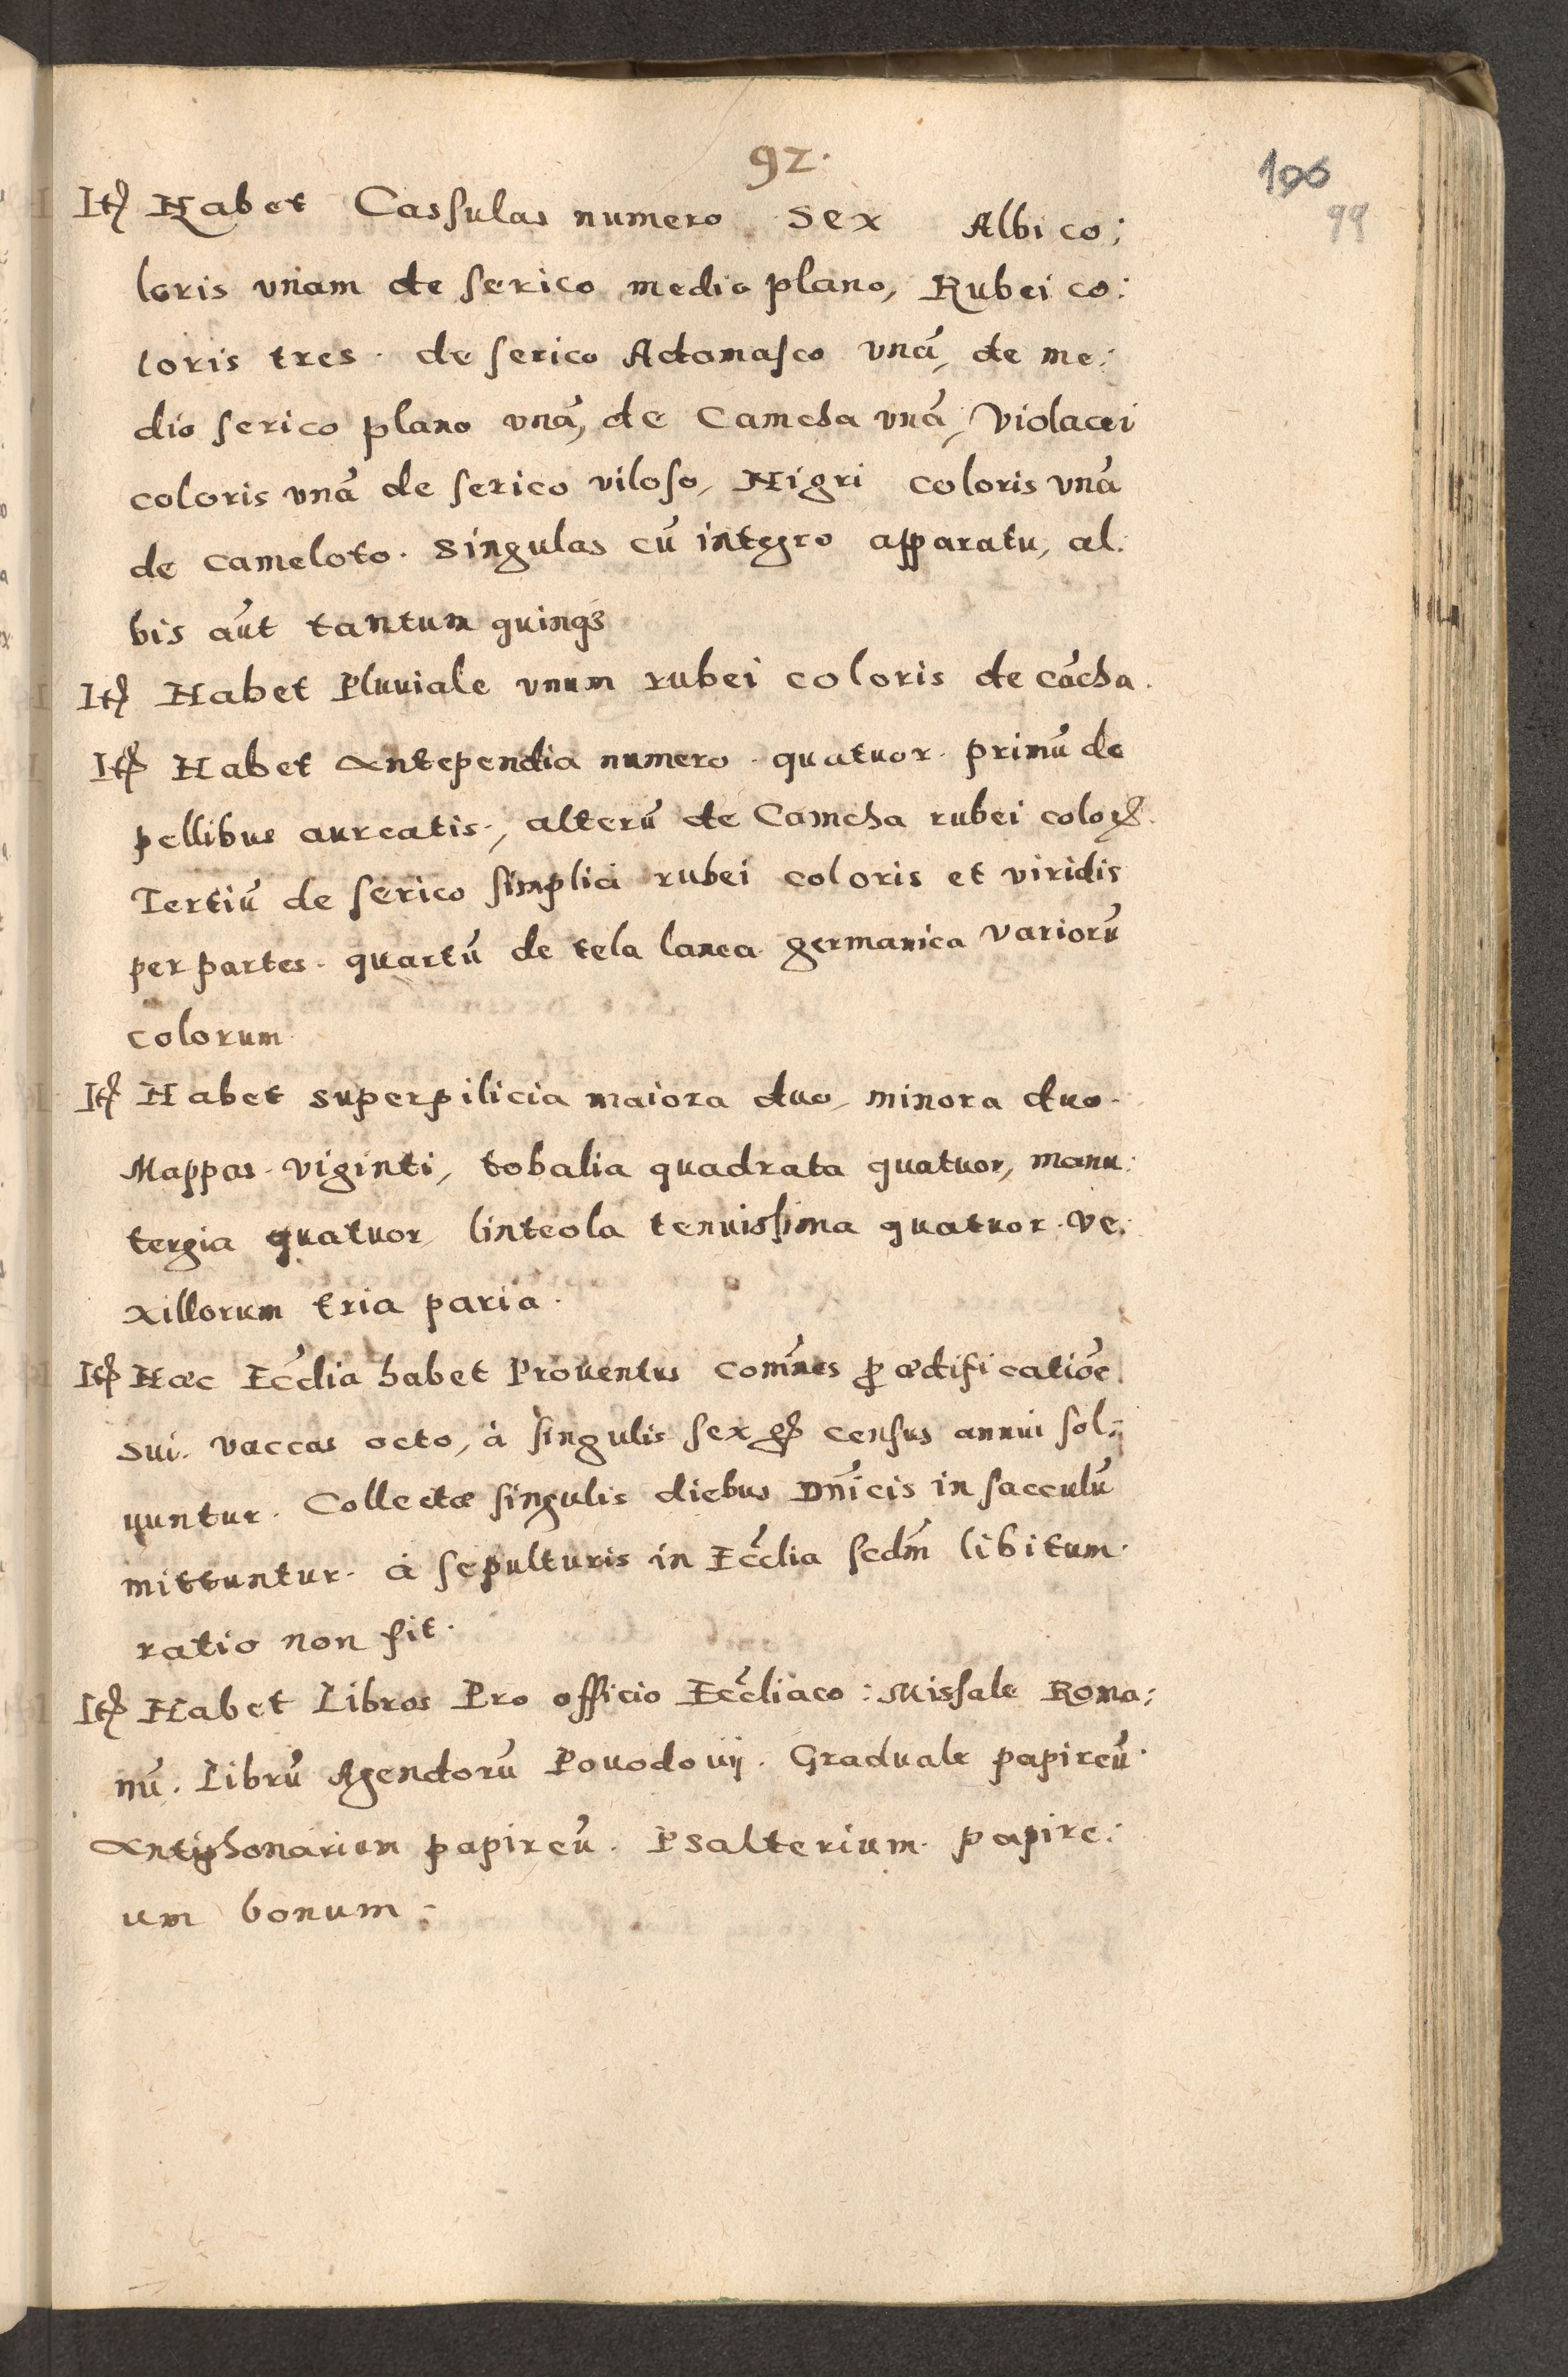 92.
106
99
Itẽ Habet Cassulas numero sex Albi co:
loris vnam de serico medio plano, Rubei co:
loris tres. de serico Adamasco vnã, de me:
dio serico plano vnã, de Camcha vnã, Violacei
coloris vnã de serico viloso, Nigri coloris vnã
de cameloto. Singulas cũ integro apparatu, al:
bis aũt tantum quinqȝ
Itẽ Habet Pluuiale vnum rubei coloris de cãcha.
Itẽ Habet Antependia numero. quatuor. primũ de
pellibus aureatis., alterũ de Camcha rubei coloꝝ.
Tertiũ de serico simplici rubei coloris et viridis
per partes. quartũ de tela lanea germanica variorũ
colorum.
Itẽ Habet superpilicia maiora duo, minora duo.
Mappas. viginti, tobalia quadrata quatuor, manu:
tergia quatuor, linteola tenuissima quatuor. ve:
xillorum tria paria.
Itẽ Hæc Eccl̃ia habet Prouentus com̃nes ꝓ ædificatiõe
sui. vaccas octo, à singulis sex gꝝ census annui sol:
uuntur. Collectæ singulis diebus Dñicis in sacculũ
mittuntur. à sepulturis in Eccl̃ia sedm̃ libitum.
ratio non fit.
Itẽ Habet Libros Pro officio Eccl̃iaco: Missale Roma:
nũ. Librũ Agendorũ Pouodouij. Graduale papireũ.
Antiphonarium papireũ. Psalterium. papire:
um bonum: